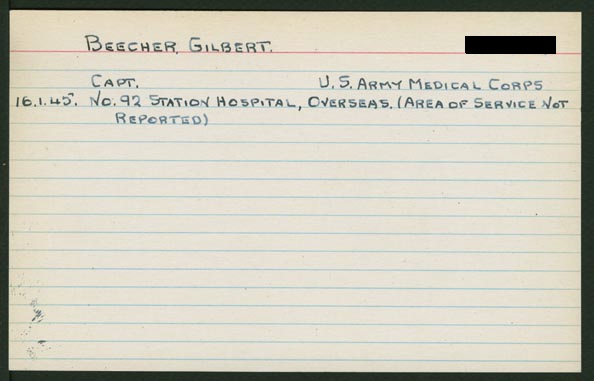 BEECHER, GILBERT.
CAPT. U.S. ARMY MEDICAL CORPS
16.1.45. NO. 92 STATION HOSPITAL, OVERSEAS. (AREA OF SERVICE NOT
REPORTED)